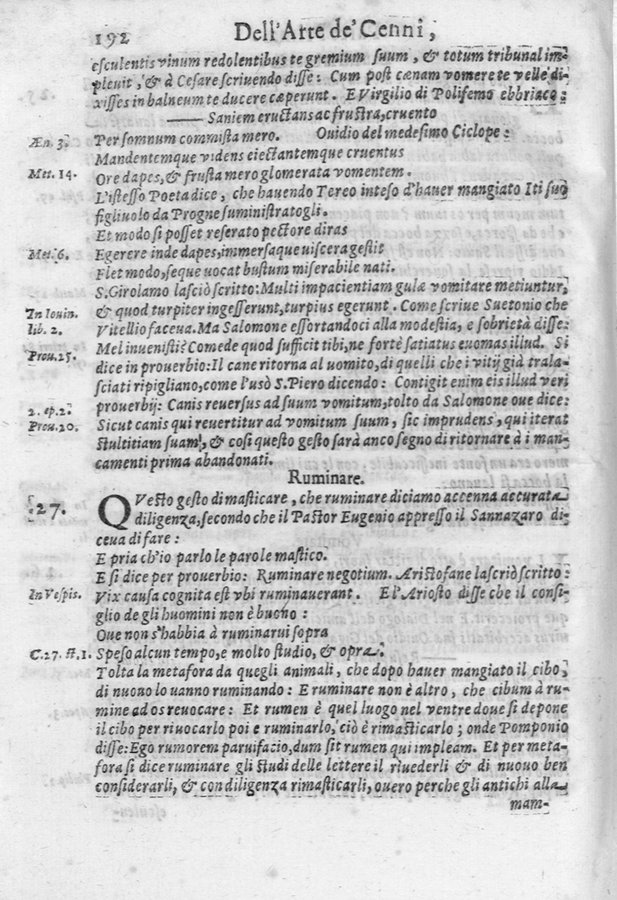 192 Dell'Arte de' Cenni,
esculentis vinum redolentibus te gremium suum, & totum tribunal im-
pleuit, & à Cesare scriuendo disse: Cum post cænam vomere te velle di-
xisses in balneum te ducere cæperunt. E Virgilio di Polifemo ebbriaco:
——— Saniem eructans ac frustra, cruento
Æn. 3. Per somnum commista mero. Ouidio del medesimo Ciclope:
Mandentemque videns eiectantemque cruentus
Met. 14. Ore dapes, & frusta mero glomerata vomentem.
L'istesso Poeta dice, che hauendo Tereo inteso d'hauer mangiato Iti suo
figliuolo da Progne suministratogli.
Et modo si posset reserato pectore diras
Met. 6. Egerere inde dapes, immersaque viscera gestit
Flet modo, seque uocat bustum miserabile nati.
S. Girolamo lasciò scritto: Multi impacientiam gulæ vomitare metiuntur,
In Iouin. & quod turpiter ingesserunt, turpius egerunt. Come scriue Suetonio che
lib. 2. Vitellio faceua. Ma Salomone essortandoci alla modestia, e sobrietà disse:
Prou. 25. Mel inuenisti? Comede quod sufficit tibi, ne fortè satiatus euomas illud. Si
dice in prouerbio: Il cane ritorna al uomito, di quelli che i vitij già trala-
sciati ripigliano, come l'usò S. Piero dicendo: Contigit enim eis illud veri
2. ep. 2. prouerbij: Canis reuersus ad suum vomitum, tolto da Salomone oue dice:
Prou. 20. Sicut canis qui reuertitur ad vomitum suum, sic imprudens, qui iterat
stultitiam suam, & cosi questo gesto sarà anco segno di ritornare à i man-
camenti prima abandonati.
Ruminare.
27. QVesto gesto di masticare, che ruminare diciamo accenna accurata
diligenza, secondo che il Pastor Eugenio appresso il Sannazaro di-
ceua di fare:
E pria ch'io parlo le parole mastico.
E si dice per prouerbio: Ruminare negotium. Aristofane lasciò scritto:
In Vespis. Vix causa cognita est vbi ruminauerant. E l'Ariosto disse che il consi-
glio de gli huomini non è buono:
Oue non s'habbia à ruminarui sopra
C. 27. st. 1. Speso alcun tempo, e molto studio, & opra.
Tolta la metafora da quegli animali, che dopo hauer mangiato il cibo,
di nuouo lo uanno ruminando: E ruminare non è altro, che cibum à ru-
mine ad os reuocare: Et rumen è quel luogo nel ventre doue si depone
il cibo per riuocarlo poi e ruminarlo, ciò è rimasticarlo; onde Pomponio
disse: Ego rumorem paruifacio, dum sit rumen qui impleam. Et per meta-
fora si dice ruminare gli studi delle lettere il riuederli & di nuouo ben
considerarli, & con diligenza rimasticarli, ouero perche gli antichi alla
mam-